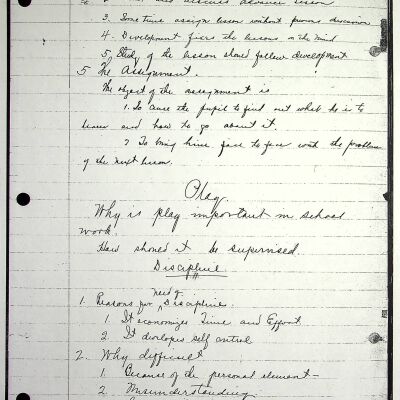 and discuss advance lesson
3. Sometime assign lesson without previous discussion
4. Development fixes the lessons in the mind
5. Study of the lesson should follow development
5 The Assignment.
The object of the assignment is
1. To cause the pupil to find out what he is to
learn and how to go about it.
2 To bring him face to face with the problems
of the next lesson.
Play.
Why is play important in school
work.
How should it be supervised.
Discipline
1. Reasons for need of Discipline.
1. It economizes Time and Effort
2. It develops self control
2. Why difficult
1. Because of the personal element-
2. Misunderstanding